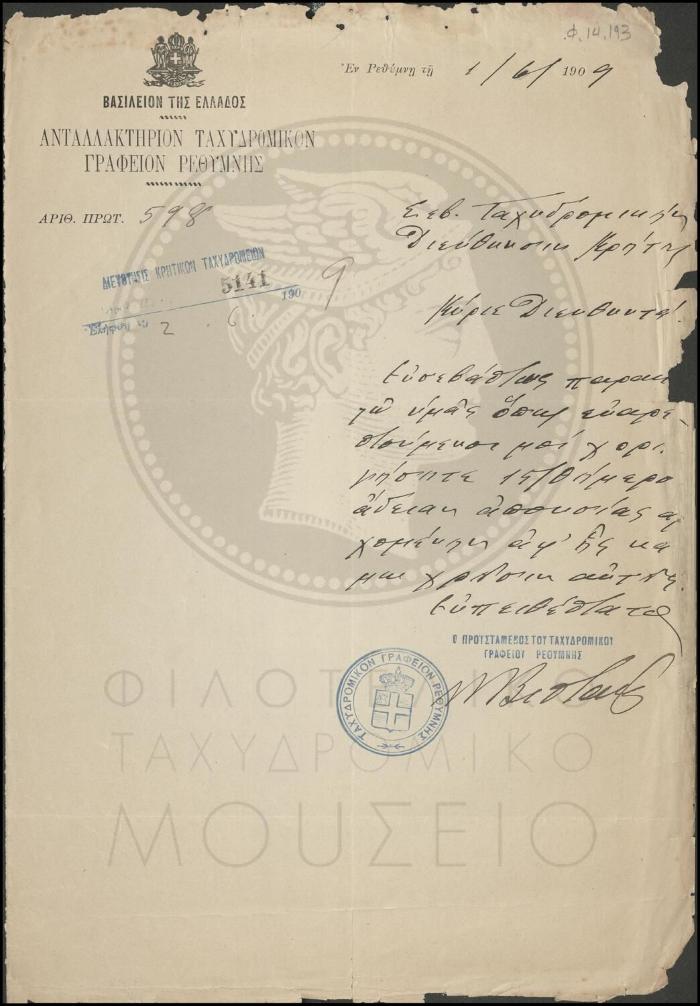 Φ.14.193
Ἐν Ρεθύμνῃ τῇ 1/6/1909
ΒΑΣΙΛΕΙΟΝ ΤΗΣ ΕΛΛΑΔΟΣ
ΑΝΤΑΛΛΑΚΤΗΡΙΟΝ ΤΑΧΥΔΡΟΜΙΚΟΝ
ΓΡΑΦΕΙΟΝ ΡΕΘΥΜΝΗΣ
ΑΡΙΘ. ΠΡΩΤ. 598
ΔΙΕΥΘΥΝΣΙΣ ΚΡΗΤΙΚΩΝ ΤΑΧΥΔΡΟΜΕΙΩΝ
5141
2 . 6 . 1909
Σεβ. Ταχυδρομικὴν
Διεύθυνσιν Κρήτης
Κύριε Διευθυντά!
Εὐσεβάστως παρακα
λῶ ὑμᾶς ὅπως εὐαρε
στούμενοι μοὶ χορη
γήσητε 15/θήμερο
ἄδειαν ἀπουσίας ἀρ
χομένην ἀφ' ἧς κά
μω χρῆσιν αὐτῆς.
Εὐπειθέστατος
Ο ΠΡΟΪΣΤΑΜΕΝΟΣ ΤΟΥ ΤΑΧΥΔΡΟΜΙΚΟΥ
ΓΡΑΦΕΙΟΥ ΡΕΘΥΜΝΗΣ
ΤΑΧΥΔΡΟΜΙΚΟΝ ΓΡΑΦΕΙΟΝ ΡΕΘΥΜΝΗΣ
ΦΙΛΟΤΕΛΙΚΟ
ΤΑΧΥΔΡΟΜΙΚΟ
ΜΟΥΣΕΙΟ